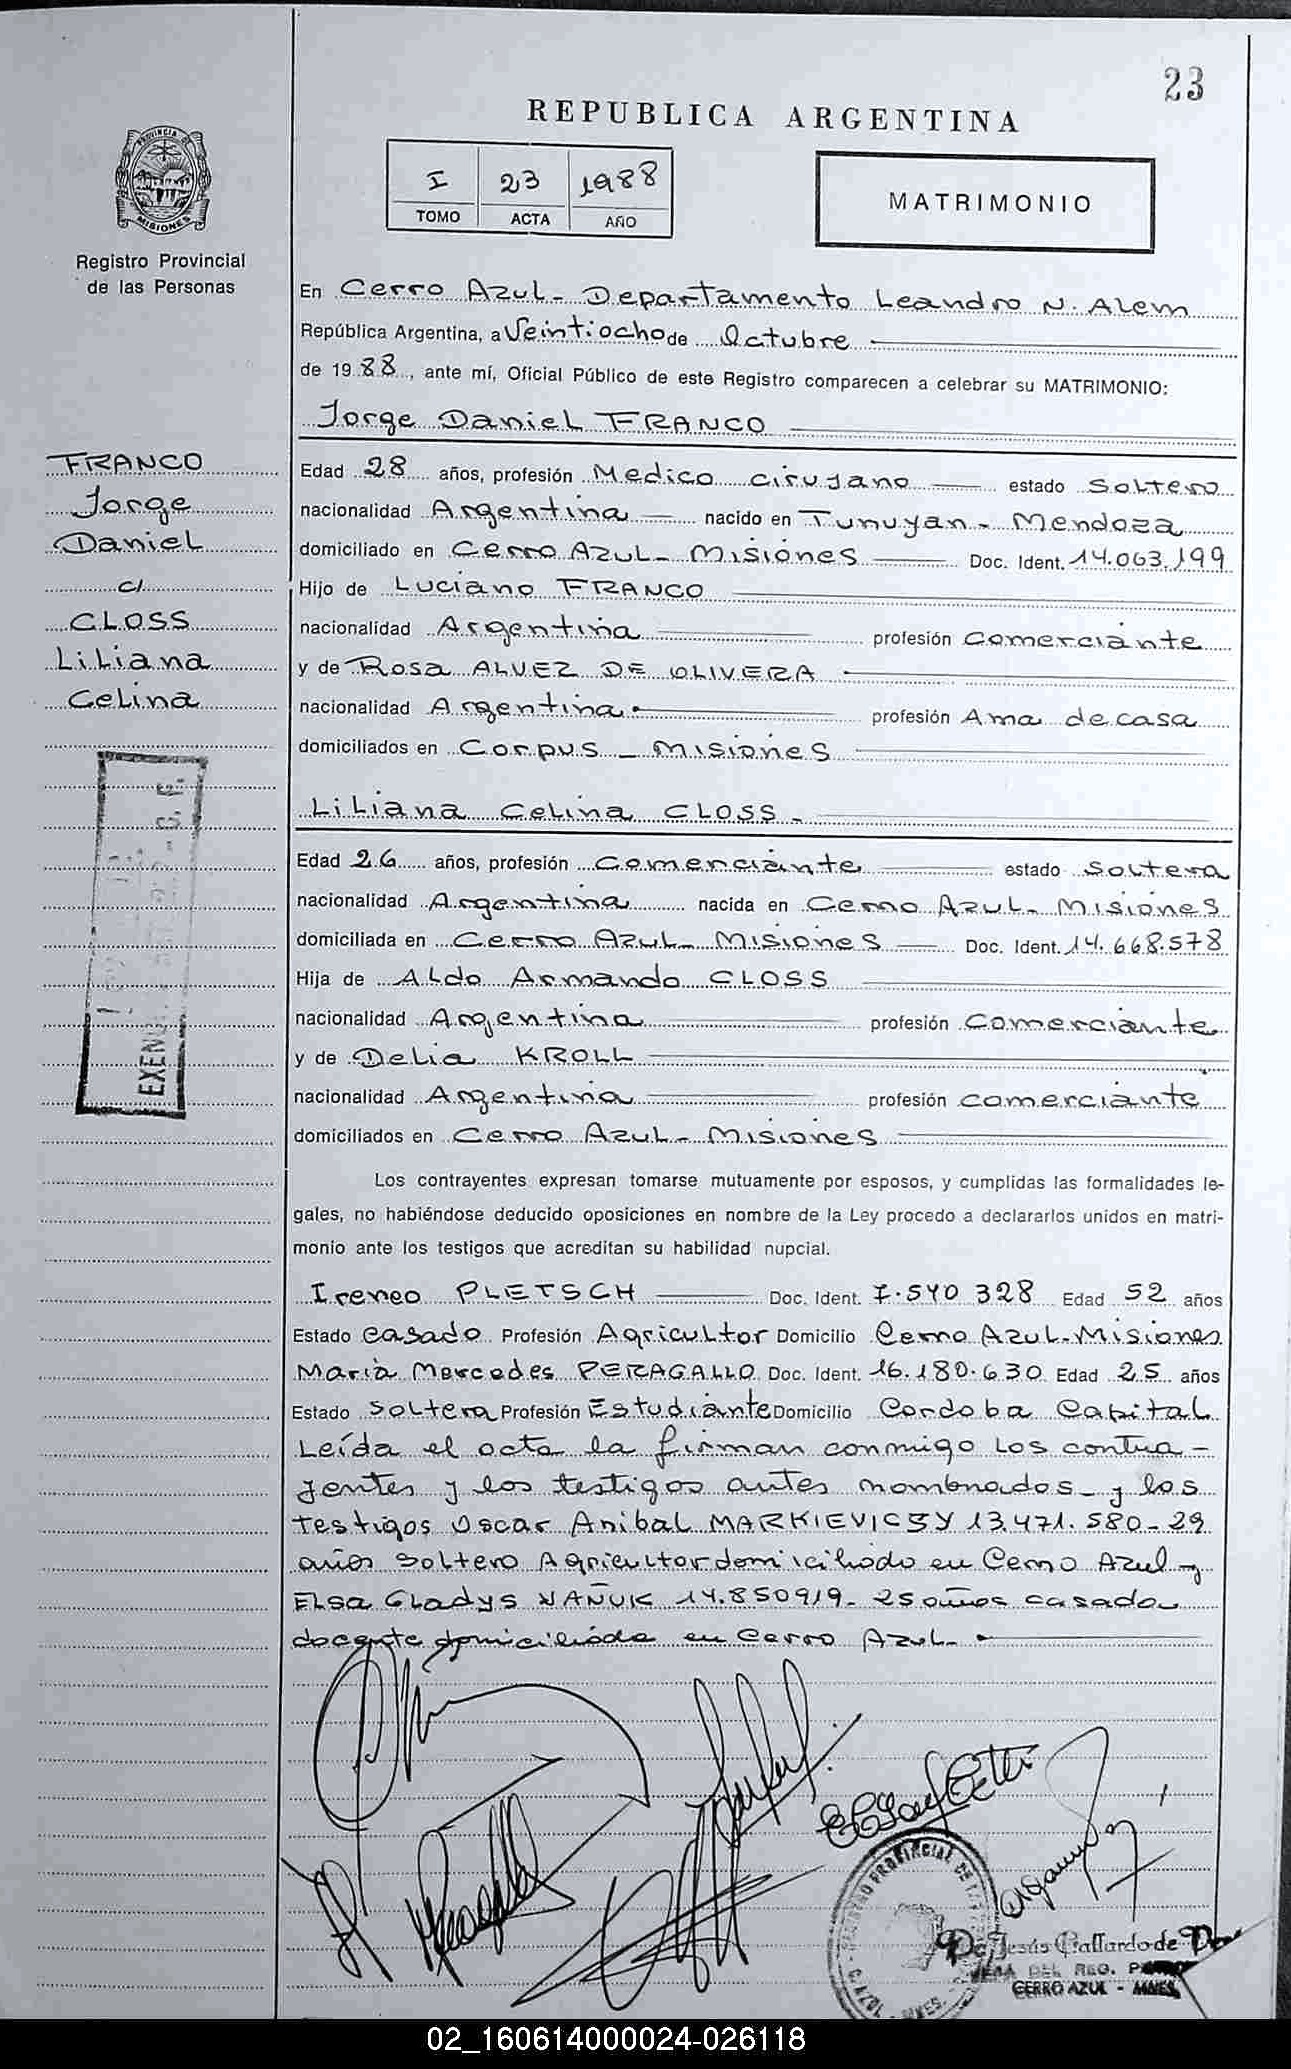 23
REPUBLICA ARGENTINA
I 23 1988
TOMO ACTA AÑO
MATRIMONIO
PROVINCIA DE
MISIONES
Registro Provincial
de las Personas
En Cerro Azul - Departamento Leandro N. Alem
República Argentina, a Veintiocho de Octubre
de 1988, ante mí, Oficial Público de este Registro comparecen a celebrar su MATRIMONIO:
Jorge Daniel FRANCO
FRANCO
Jorge
Daniel
c/
CLOSS
Liliana
Celina
Edad 28 años, profesión Medico cirujano estado Soltero
nacionalidad Argentina nacido en Tunuyan - Mendoza
domiciliado en Cerro Azul - Misiones Doc. Ident. 14.063.199
Hijo de Luciano FRANCO
nacionalidad Argentina profesión comerciante
y de Rosa ALVEZ DE OLIVERA
nacionalidad Argentina profesión Ama de casa
domiciliados en Corpus - Misiones
Liliana Celina CLOSS -
Edad 26 años, profesión Comerciante estado Soltera
nacionalidad Argentina nacida en Cerro Azul - Misiones
domiciliada en Cerro Azul - Misiones Doc. Ident. 14.668.578
Hija de Aldo Armando CLOSS
nacionalidad Argentina profesión Comerciante
y de Delia KROLL
nacionalidad Argentina profesión comerciante
domiciliados en Cerro Azul - Misiones
Los contrayentes expresan tomarse mutuamente por esposos, y cumplidas las formalidades le-
gales, no habiéndose deducido oposiciones en nombre de la Ley procedo a declararlos unidos en matri-
monio ante los testigos que acreditan su habilidad nupcial.
Ireneo PLETSCH Doc. Ident. 7.540 328 Edad 52 años
Estado casado Profesión Agricultor Domicilio Cerro Azul - Misiones
Maria Mercedes PERAGALLO Doc. Ident. 16.180.630 Edad 25 años
Estado Soltera Profesión Estudiante Domicilio Cordoba Capital
Leída el acta la firman conmigo los contra-
yentes y los testigos antes nombrados - y los
testigos Oscar Anibal MARKIEVICSY 13.471.580 - 29
años soltero Agricultor domiciliado en Cerro Azul - y
Elsa Gladys ÑAÑUK 14.850919 - 25 años casada
docente domiciliada en Cerro Azul -
EXEN
REGISTRO PROVINCIAL DE
C. AZUL - MNES.
Jesús Gallardo de
DEL REG.
CERRO AZUL - MNES.
02_160614000024-026118